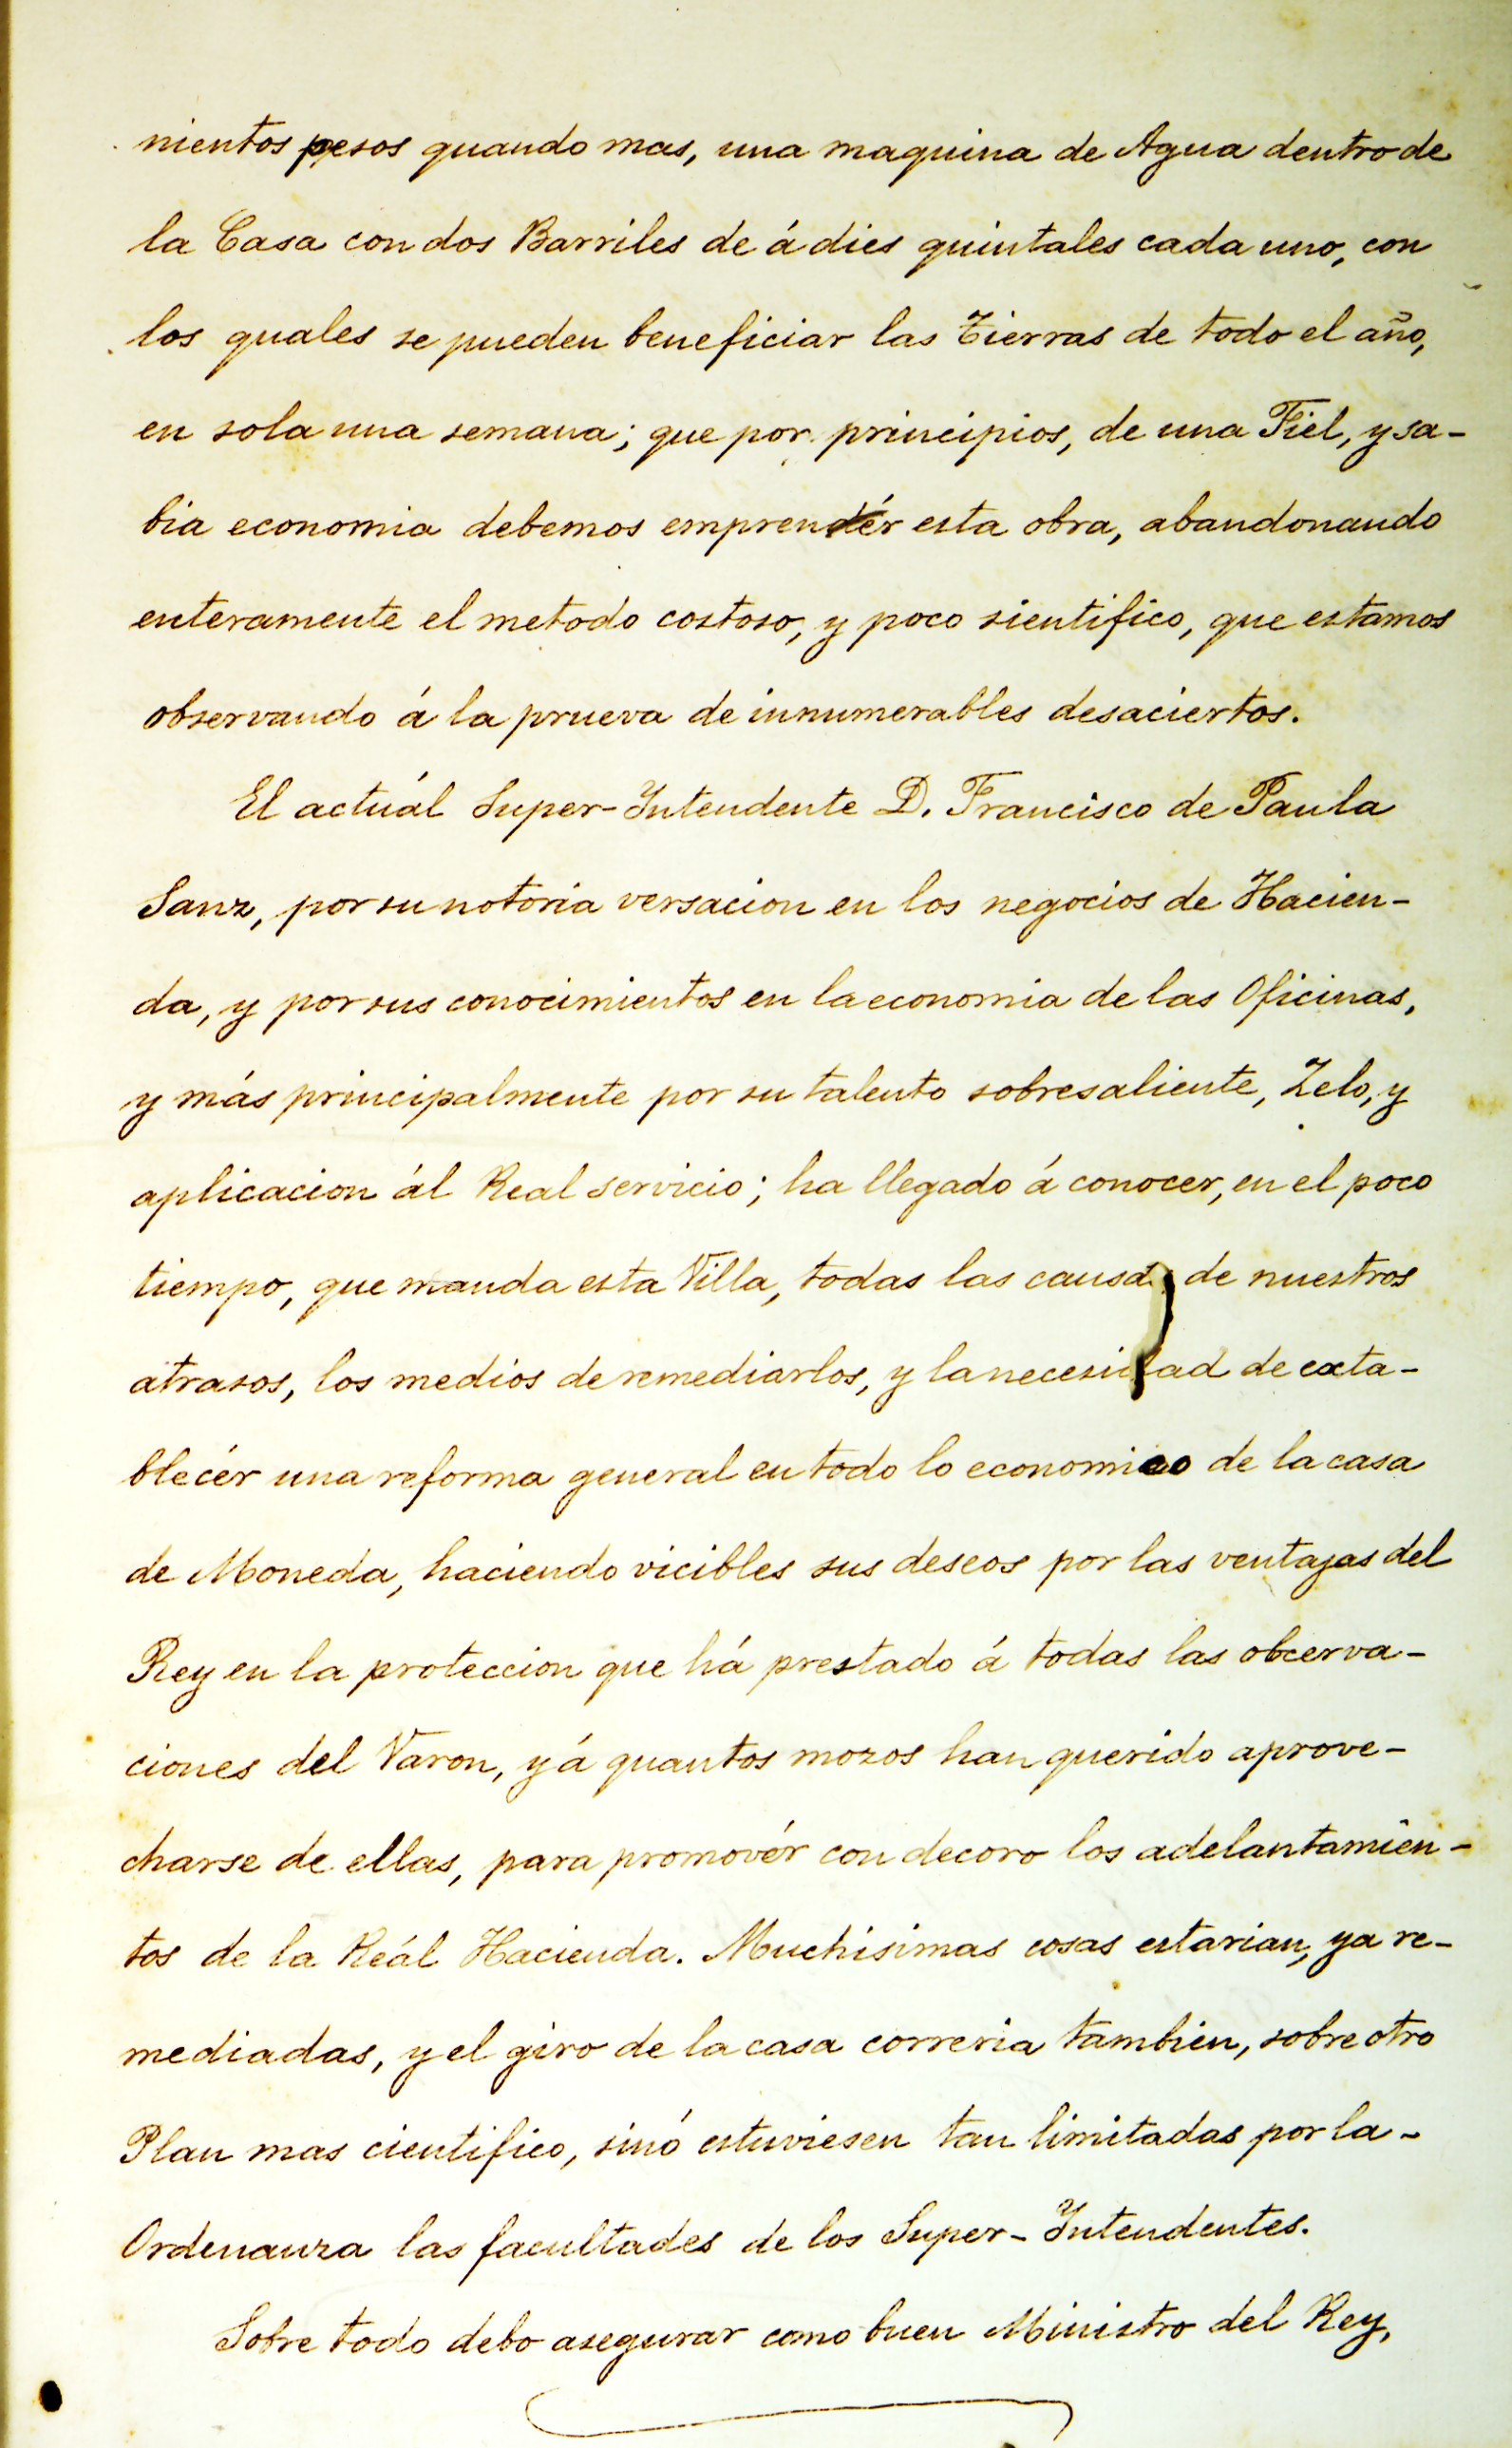 nientos pesos quando mas, una maquina de Agua dentro de
la Casa con dos Barriles de á dies quintales cada uno, con
los quales se pueden beneficiar las Tierras de todo el año,
en sola una semana; que por principios, de una Fiel, y sa-
bia economia debemos emprendér esta obra, abandonando
enteramente el metodo costoso, y poco sientifico, que estamos
observando á la prueva de innumerables desaciertos.
El actuál Super-Intendente D. Francisco de Paula
Sanz, por su notoria versacion en los negocios de Hacien-
da, y por sus conocimientos en la economia de las Oficinas,
y más principalmente por su talento sobresaliente, Zelo, y
aplicacion ál Real servicio; ha llegado á conocer, en el poco
tiempo, que manda esta Villa, todas las causas de nuestros
atrasos, los medios de remediarlos, y la necesidad de exta-
blecér una reforma general en todo lo economico de la casa
de Moneda, haciendo vicibles sus deseos por las ventajas del
Rey en la proteccion que há prestado á todas las obcerva-
ciones del Varon, y á quantos mozos han querido aprove-
charse de ellas, para promovér con decoro los adelantamien-
tos de la Reál Hacienda. Muchisimas cosas estarian, ya re-
mediadas, y el giro de la casa correria tambien, sobre otro
Plan mas cientifico, sinó estuviesen tan limitadas por la-
Ordenanza las facultades de los Super-Intendentes.
Sobre todo debo asegurar como buen Ministro del Rey,